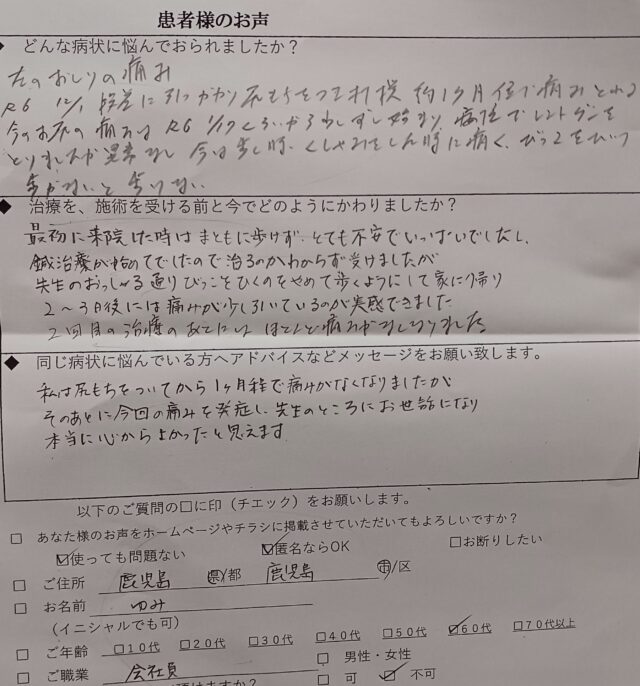 患者様のお声
◆ どんな病状に悩んでおられましたか?
左のおしりの痛み
R6 12/1 段差に引っかかり尻もちをつき打撲 約1ヶ月位で痛みとれる
今のお尻の痛みは R6 1/17くらいから少しずつ始まり 病院でレントゲンを
とりましたが異常なし 今は歩く時、くしゃみをした時に痛く、びっこをひいて
歩かないと歩けない
◆ 治療を、施術を受ける前と今でどのようにかわりましたか?
最初に来院した時はまともに歩けず、とても不安でいっぱいでしたし、
鍼治療が始めてでしたので治るのかわからず受けましたが
先生のおっしゃる通りびっこをひくのをやめて歩くようにして家に帰り
2~3日後には痛みが少し引いているのが実感できました
2回目の治療のあとには ほとんど痛みがなくなりました
◆ 同じ病状に悩んでいる方へアドバイスなどメッセージをお願い致します。
私は尻もちをついてから1ヶ月程で痛みがなくなりましたが
そのあとに今回の痛みを発症し、先生のところにお世話になり
本当に心からよかったと思えます
以下のご質問の□に印(チェック)をお願いします。
□ あなた様のお声をホームページやチラシに掲載させていただいてもよろしいですか?
☑使っても問題ない ☑匿名ならOK □お断りしたい
□ ご住所 鹿児島 県/都 鹿児島 市/区
□ お名前 ゆみ
(イニシャルでも可)
□ ご年齢 □10代 □20代 □30代 □40代 □50代 ☑60代 □70代以上
□ ご職業 会社員 □ 男性・女性
□ 可 ☑ 不可